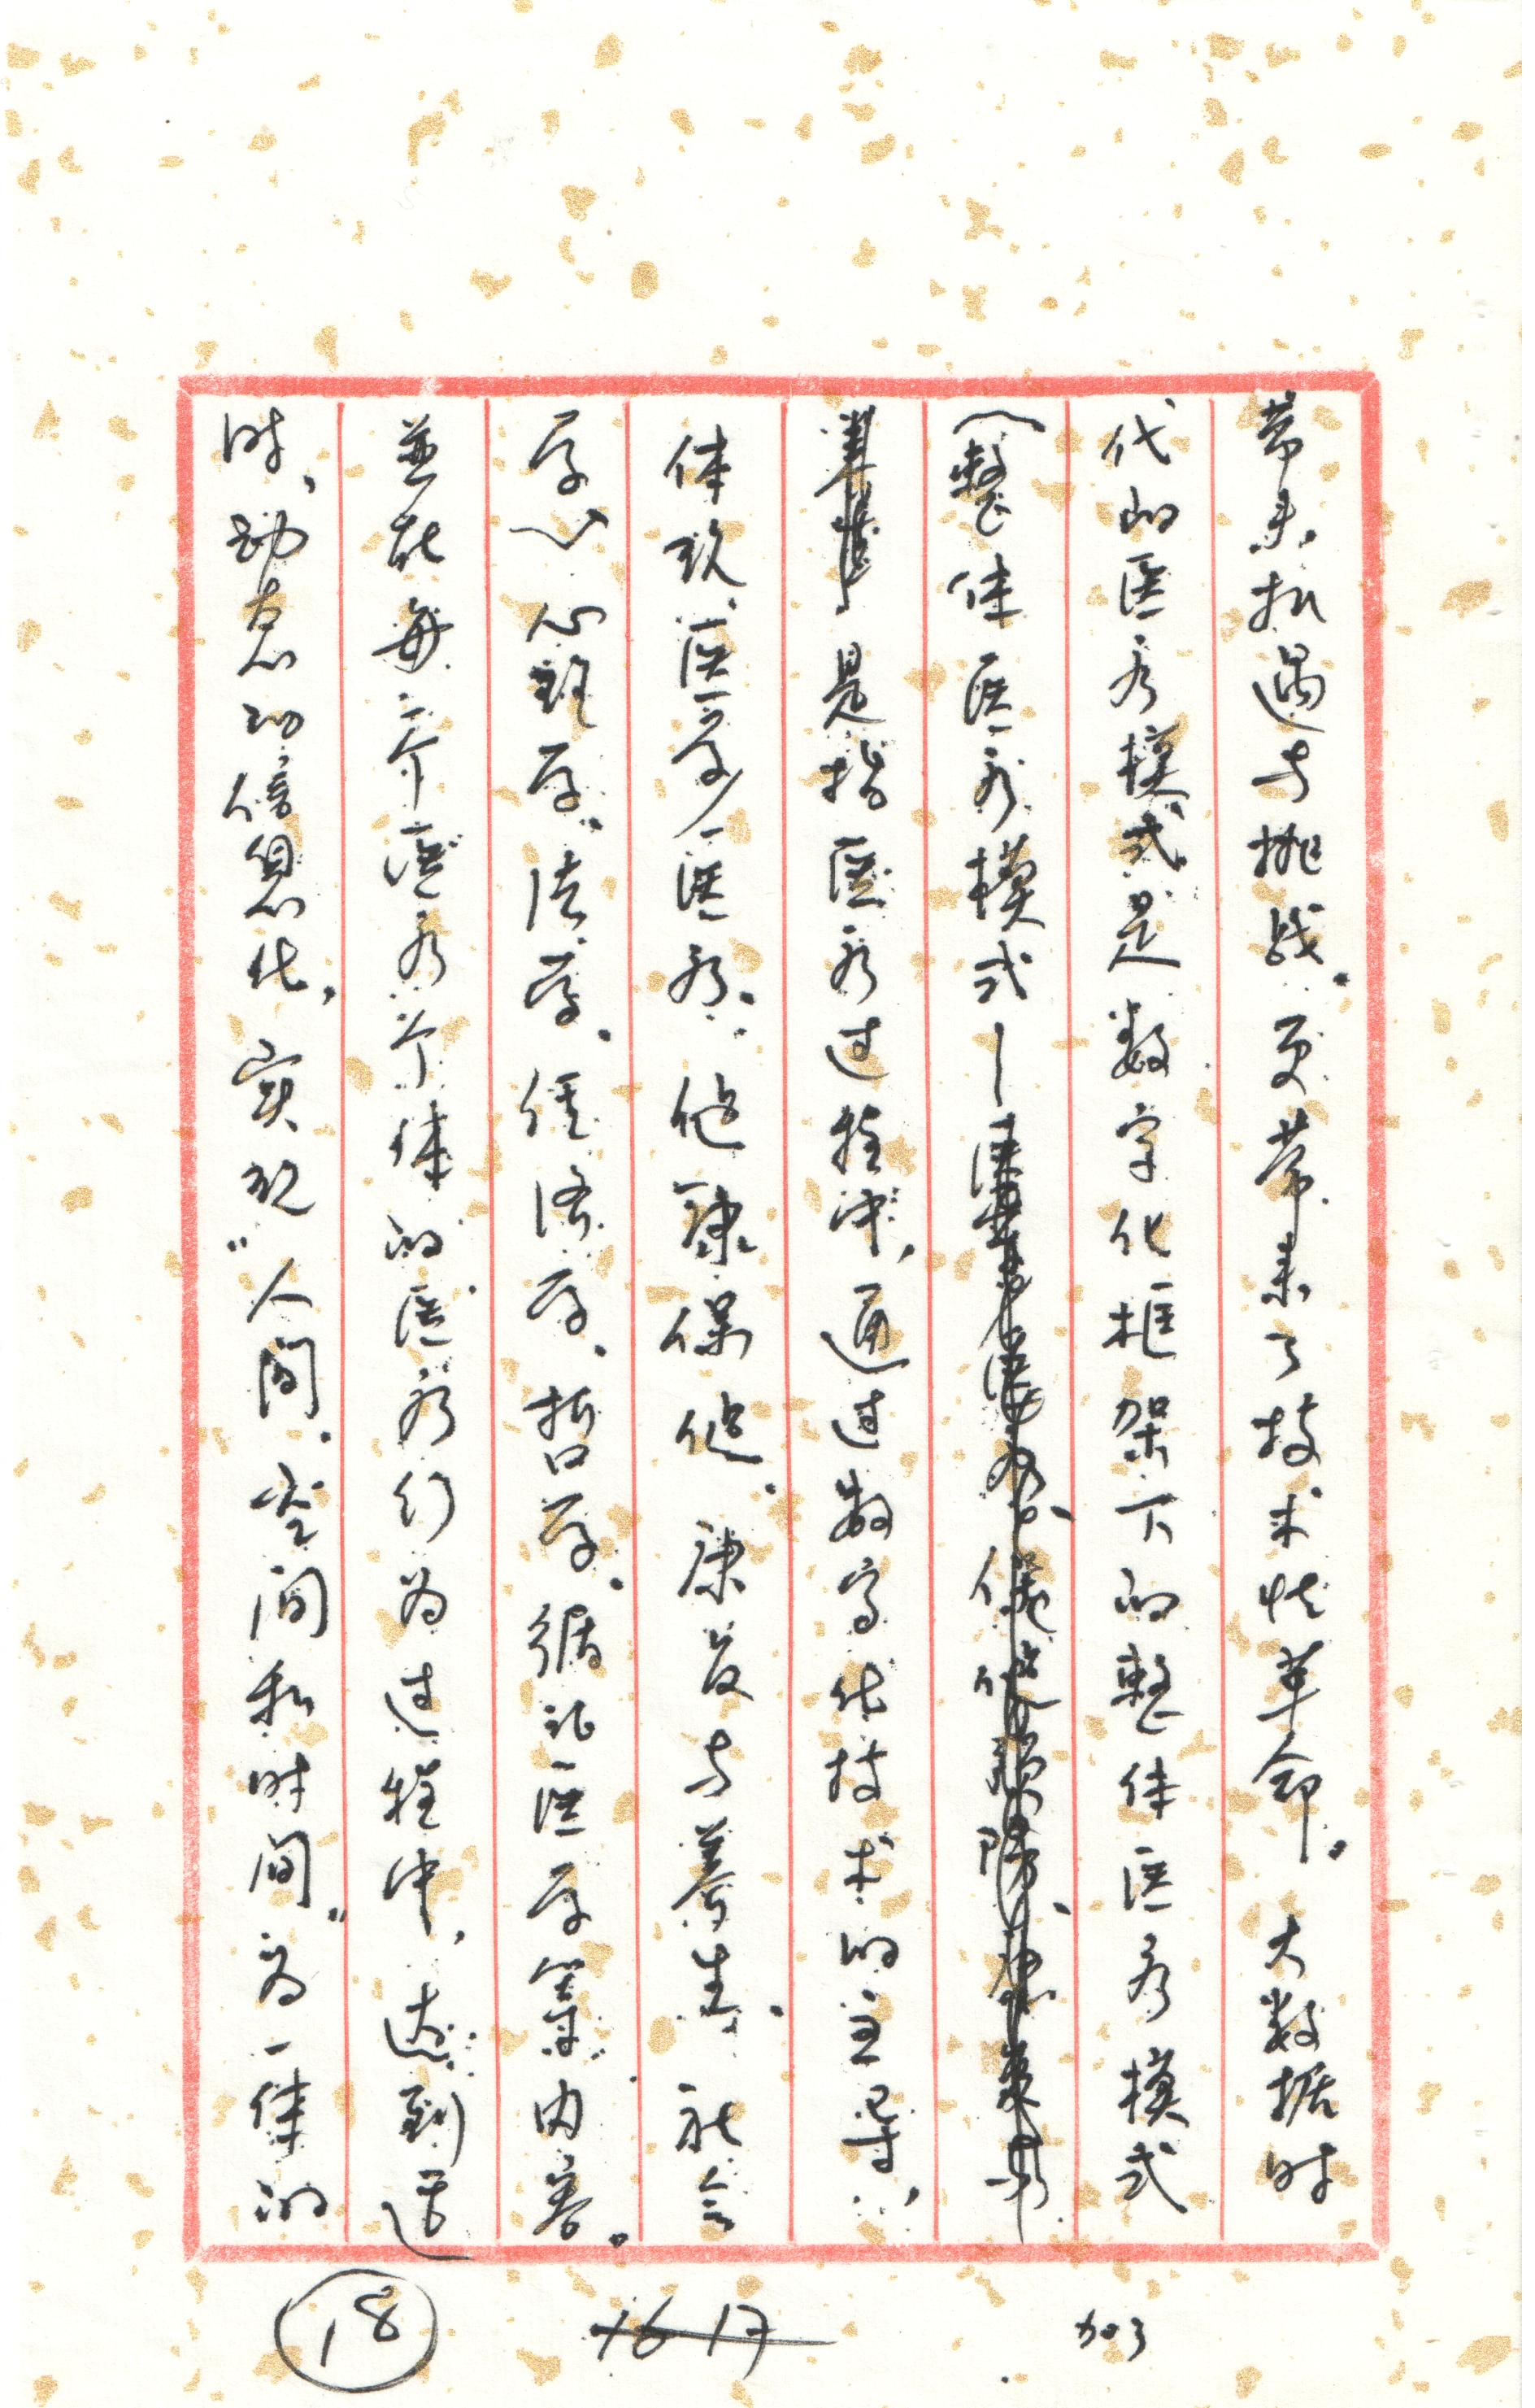 带来机遇与挑战。更带来了技术性革命。大数据时
代的医疗模式是数字化框架下的整体医疗模式
(整体医疗模式一
是指医疗过程中，通过数字化技术的主导，
体现医学医疗、健康保健、康复与养生、社会
学、心理学、法学、经济学、哲学、循证医学等内容。
并在每一个医疗个体的医疗行为过程中，达到适
时、动态的信息化，实现“人间、空间和时间”为一体的
18
16 17
加3